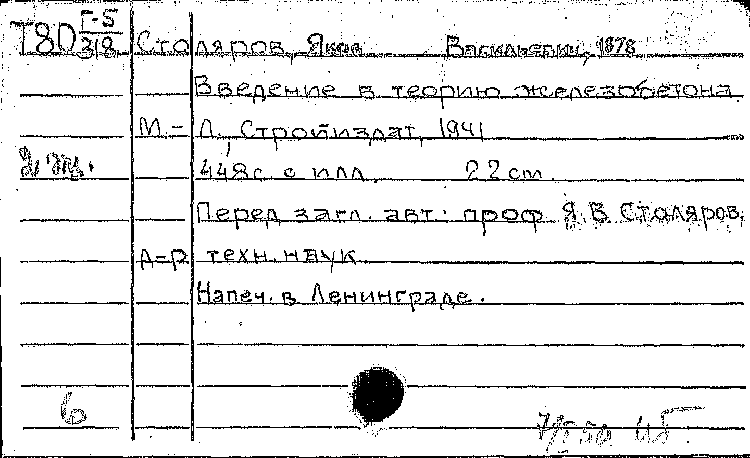 Т80 Г-5/318 Столяров, Яков Васильевич, 1878
Введение в теорию железобетона.
М.-Л., Стройиздат, 1941
2 экз. 448с. с илл. 22 cm.
Перед загл. авт: проф Я. В. Столяров,
д-р техн. наук
Напеч. в Ленинграде.
6